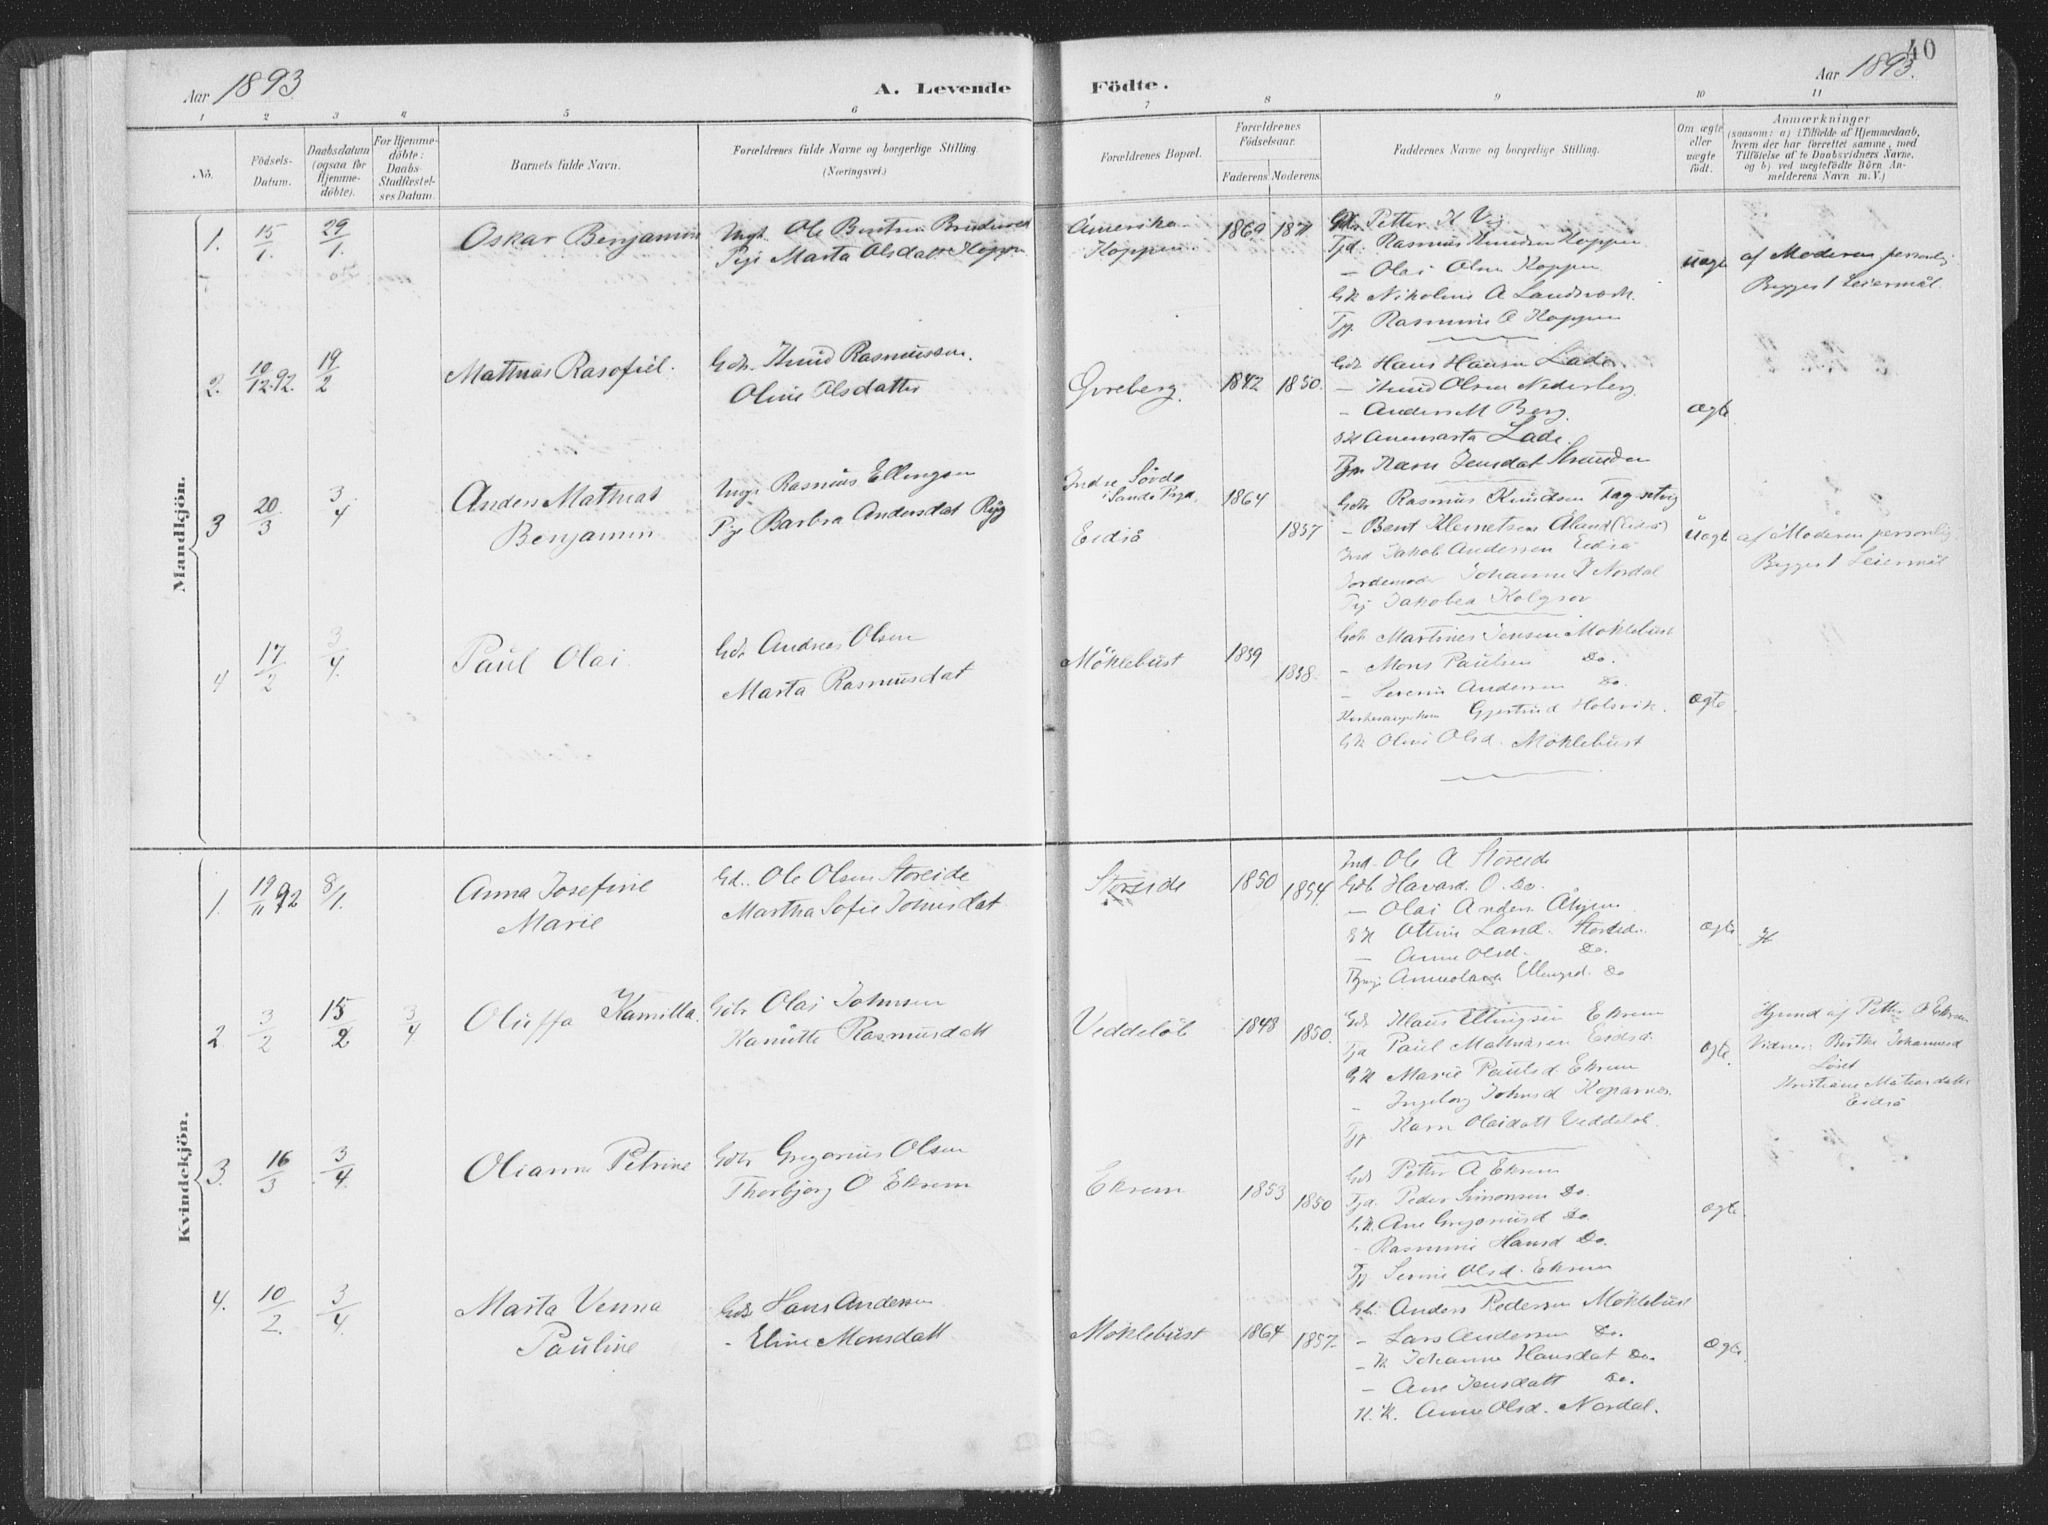 Aar 1893.
A. Levende Födte.
Aar 1893.
40
1 2 3 4 5 6 7 8 9 10 11
No.
Födsels-Datum.
Daabsdatum (ogsaa för Hjemmedöbte).
For Hjemmedöbte: Daabs-Stadfæstelses Datum.
Barnets fulde Navn.
Forældrenes fulde Navne og borgerlige Stilling. (Næringsvei.)
Forældrenes Bopæl.
Forældrenes Födselsaar.
Faderens. Moderens.
Faddernes Navne og borgerlige Stilling.
Om ægte eller uægte födt.
Anmærkninger
(saasom: a) i Tilfælde af Hjemmedaab, hvem der har forrettet samme, med Tilföielse af to Daabsvidners Navne, og b) ved uægtefödte Börn Anmelderens Navn m. V.)
Mandkjön.
1. 15/1. 29/1. Oskar Benjamin
Ole Bentsen
Pige Marta Olsdatter Koppen
Amerika
Koppen
1869 1871
Petter K Vig
Tjd. Rasmus Knudsen Koppen
- Olai Olsen Koppen
Gk Nikoline A Landsverk.
Tjp Rasmine O Koppen
uægte
af Moderen personlig
Begges 1 Leiermål.
2. 10/12.92. 19/2 Mathias Rasofiel.
Gdr. Knud Rasmussen.
Oline Olsdatter
Øvreberg.
1842 1850.
Gdr Hans Hansen Lade
- Knud Olsen Nederberg
- Anders M Berg.
Gk Anemarta Lade.
Karn Jensdat
ægte
3 20/3 3/4 Anders Mathias
Benjamin
Ungk Rasmus Ellingsen
Pige Barbra Andersdat Ryg
Indre Sörde
i Sande Prgd.
Eidsö
1864
1857
Gdr Rasmus Knudsen
- Bent Klemetsen Åland (Eidsö)
Ind Jakob Andersen Eidsö
Jordemoder Johanne J Nordal
Pige Jakobea Kolgrov
Uægte
af Moderen personlig
Begges 1 Leiermål
4 17/2 3/4. Paul Olai
Gdr Andreas Olsen
Marta Rasmusdat
Möklebust
1859
1858.
Gdr Martines Jensen Möklebust
- Mons Paulsen Do.
- Severin Andersen Do.
Gjertrud Holsvik.
Gk Oline Olsd. Möklebust
ægte
Kvindekjön.
1. 19/11 92 8/1. Anna Josefine
Marie
Gd. Ole Olsen Storeide
Martha Sofie Johnsdat
Storeide
1850 1854.
Ind. Ole A Storeide
Gdb Havard O. Do.
- Olai Anders
Gk Ottine Land. Storeide
- Anne Olsd. Do.
Pige Anneolave Ellingsd. Do
ægte.
H
2 3/2 15/2 3/4 Oluffa Kamilla.
Gdr Olai Johnsen
Kanutte Rasmusdatt
Veddelöb
1848 1850.
Gdr Klaus Ellingsen Ekrem
Tjd Paul Mathiasen Eidsö
Gk Marie Paulsd Ekrem
- Ingeborg Johnsd Koparnes.
Tjp. Karn Olaidatt Veddelöb.
ægte.
Hjemd af Petter A Ekrem
Vidner: Birthe Johannesd
Löset
Kristiane Matiasdatter
Eidsö
3. 16/3 3/4. Olianne Petrine
Gdr Gregorius Olsen
Thorbjörg O Ekrem
Ekrem
1853 1850
Gdr Petter A Ekrem
Tjd. Peder Simonsen Do.
Gk. Ane Gregoriusd Do.
- Rasmine Hansd Do.
Tjp. Serine Olsd. Ekrem
ægte.
4. 10/2. 3/4. Marta Venna
Pauline
Gdr Hans Andersen
- Eline Monsdatt
Möklebust
1864 1857
Gdr. Anders Pedersen Möklebust
- Lars Andersen Do.
- K Johanne Hansdat Do.
- Ane Jensdatt Do.
K. K. Anne Olsd. Nordal.
ægte.